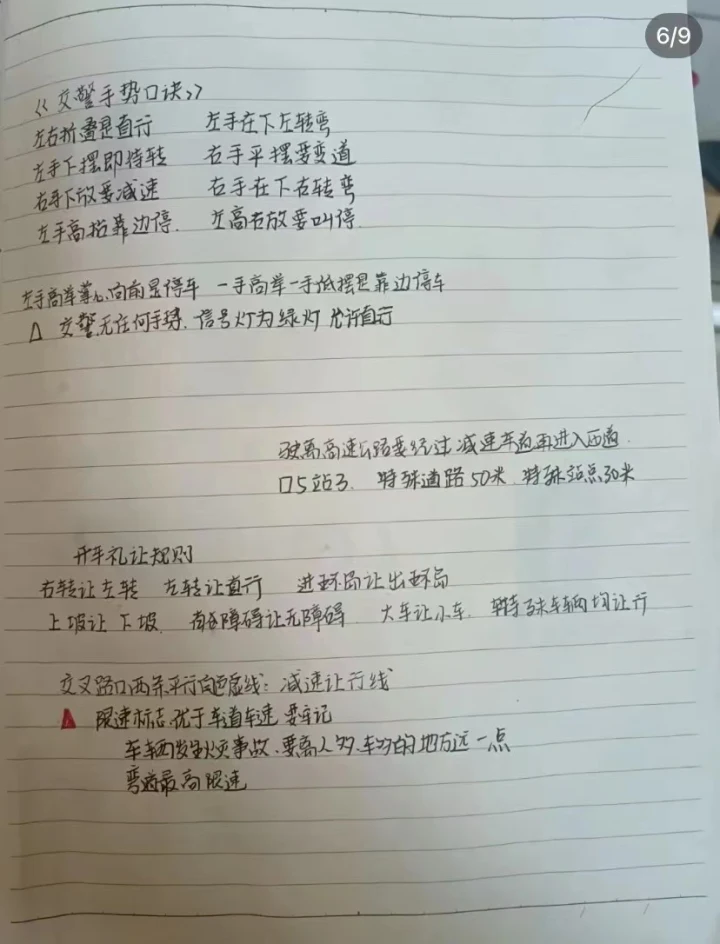 6/9
《交警手势口诀》
左右折叠是直行 左手在下左转弯
左手下摆即待转 右手平摆要变道
右手下放要减速 右手在下右转弯
左手高抬靠边停. 左高右放要叫停.
左手高举掌心向前是停车 一手高举一手低摆是靠边停车
△ 交警无任何手势, 信号灯为绿灯 允许直行
驶离高速公路要经过减速车道再进入匝道.
口5站3. 特殊道路50米 特殊站点30米
开车礼让规则
右转让左转 左转让直行 进环岛让出环岛
上坡让下坡. 有障碍让无障碍 大车让小车. 特殊车辆均让行
交叉路口两条平行白虚线: 减速让行线
△ 限速标志优于车道车速 要牢记
车辆发生火灾事故, 要离人多, 车多的地方远一点
弯道最高限速